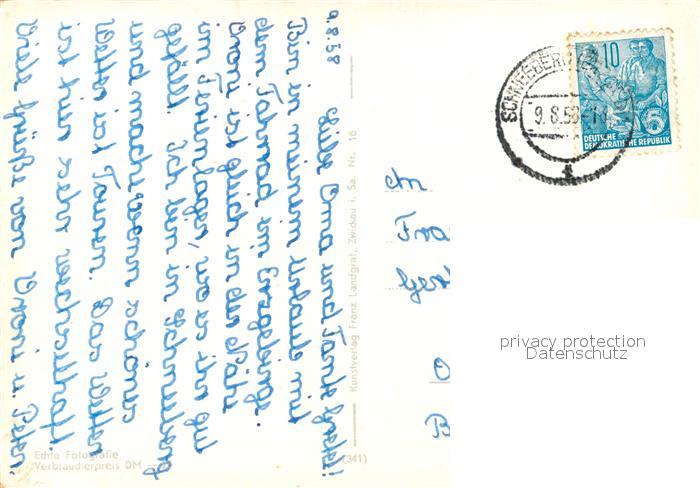 9.8.58
Liebe Oma und Tante Lydi!
Bin in meinem Urlaub mit
dem Fahrrad im Erzgebirge.
Droni ist gleich in der Nähe
im Ferienlager, wo es ihr gut
gefällt. Ich bin in Schneeberg
und mache wenn schönes
Wetter ist Touren. Das Wetter
ist hier sehr wechselhaft.
Viele Grüße von Droni u. Peter.
Kunstverlag Franz Landgraf, Zwickau i. Sa. Nr. 16
Echte Fotografie
Verbraucherpreis DM
(341)
SCHNEEBERG
9.8.58
10
DEUTSCHE
DEMOKRATISCHE REPUBLIK
An
Fra
privacy protection
Datenschutz